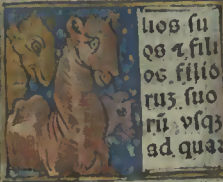 lios su
os ⁊ fili
os filio
ruꝫ suo
rū vsqꝫ
ad quar